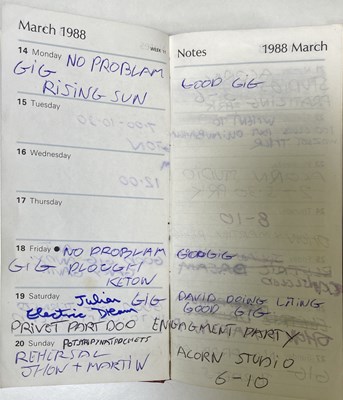 March 1988
WEEK 11
14 Monday NO PROBLAM
GIG
RISING SUN
15 Tuesday
16 Wednesday
17 Thursday
18 Friday NO PROBLAM
GIG PLOUGH
KETOW
19 Saturday Julian GIG
Electric Dream
PRIVET PART DOO ENGAGMENT PARTY
20 Sunday
REHERSAL
JHON + MARTIN
Notes 1988 March
GOOD GIG
GOOD GIG
DAVID DOING LITING
GOOD GIG
ACORN STUDIO
6-10